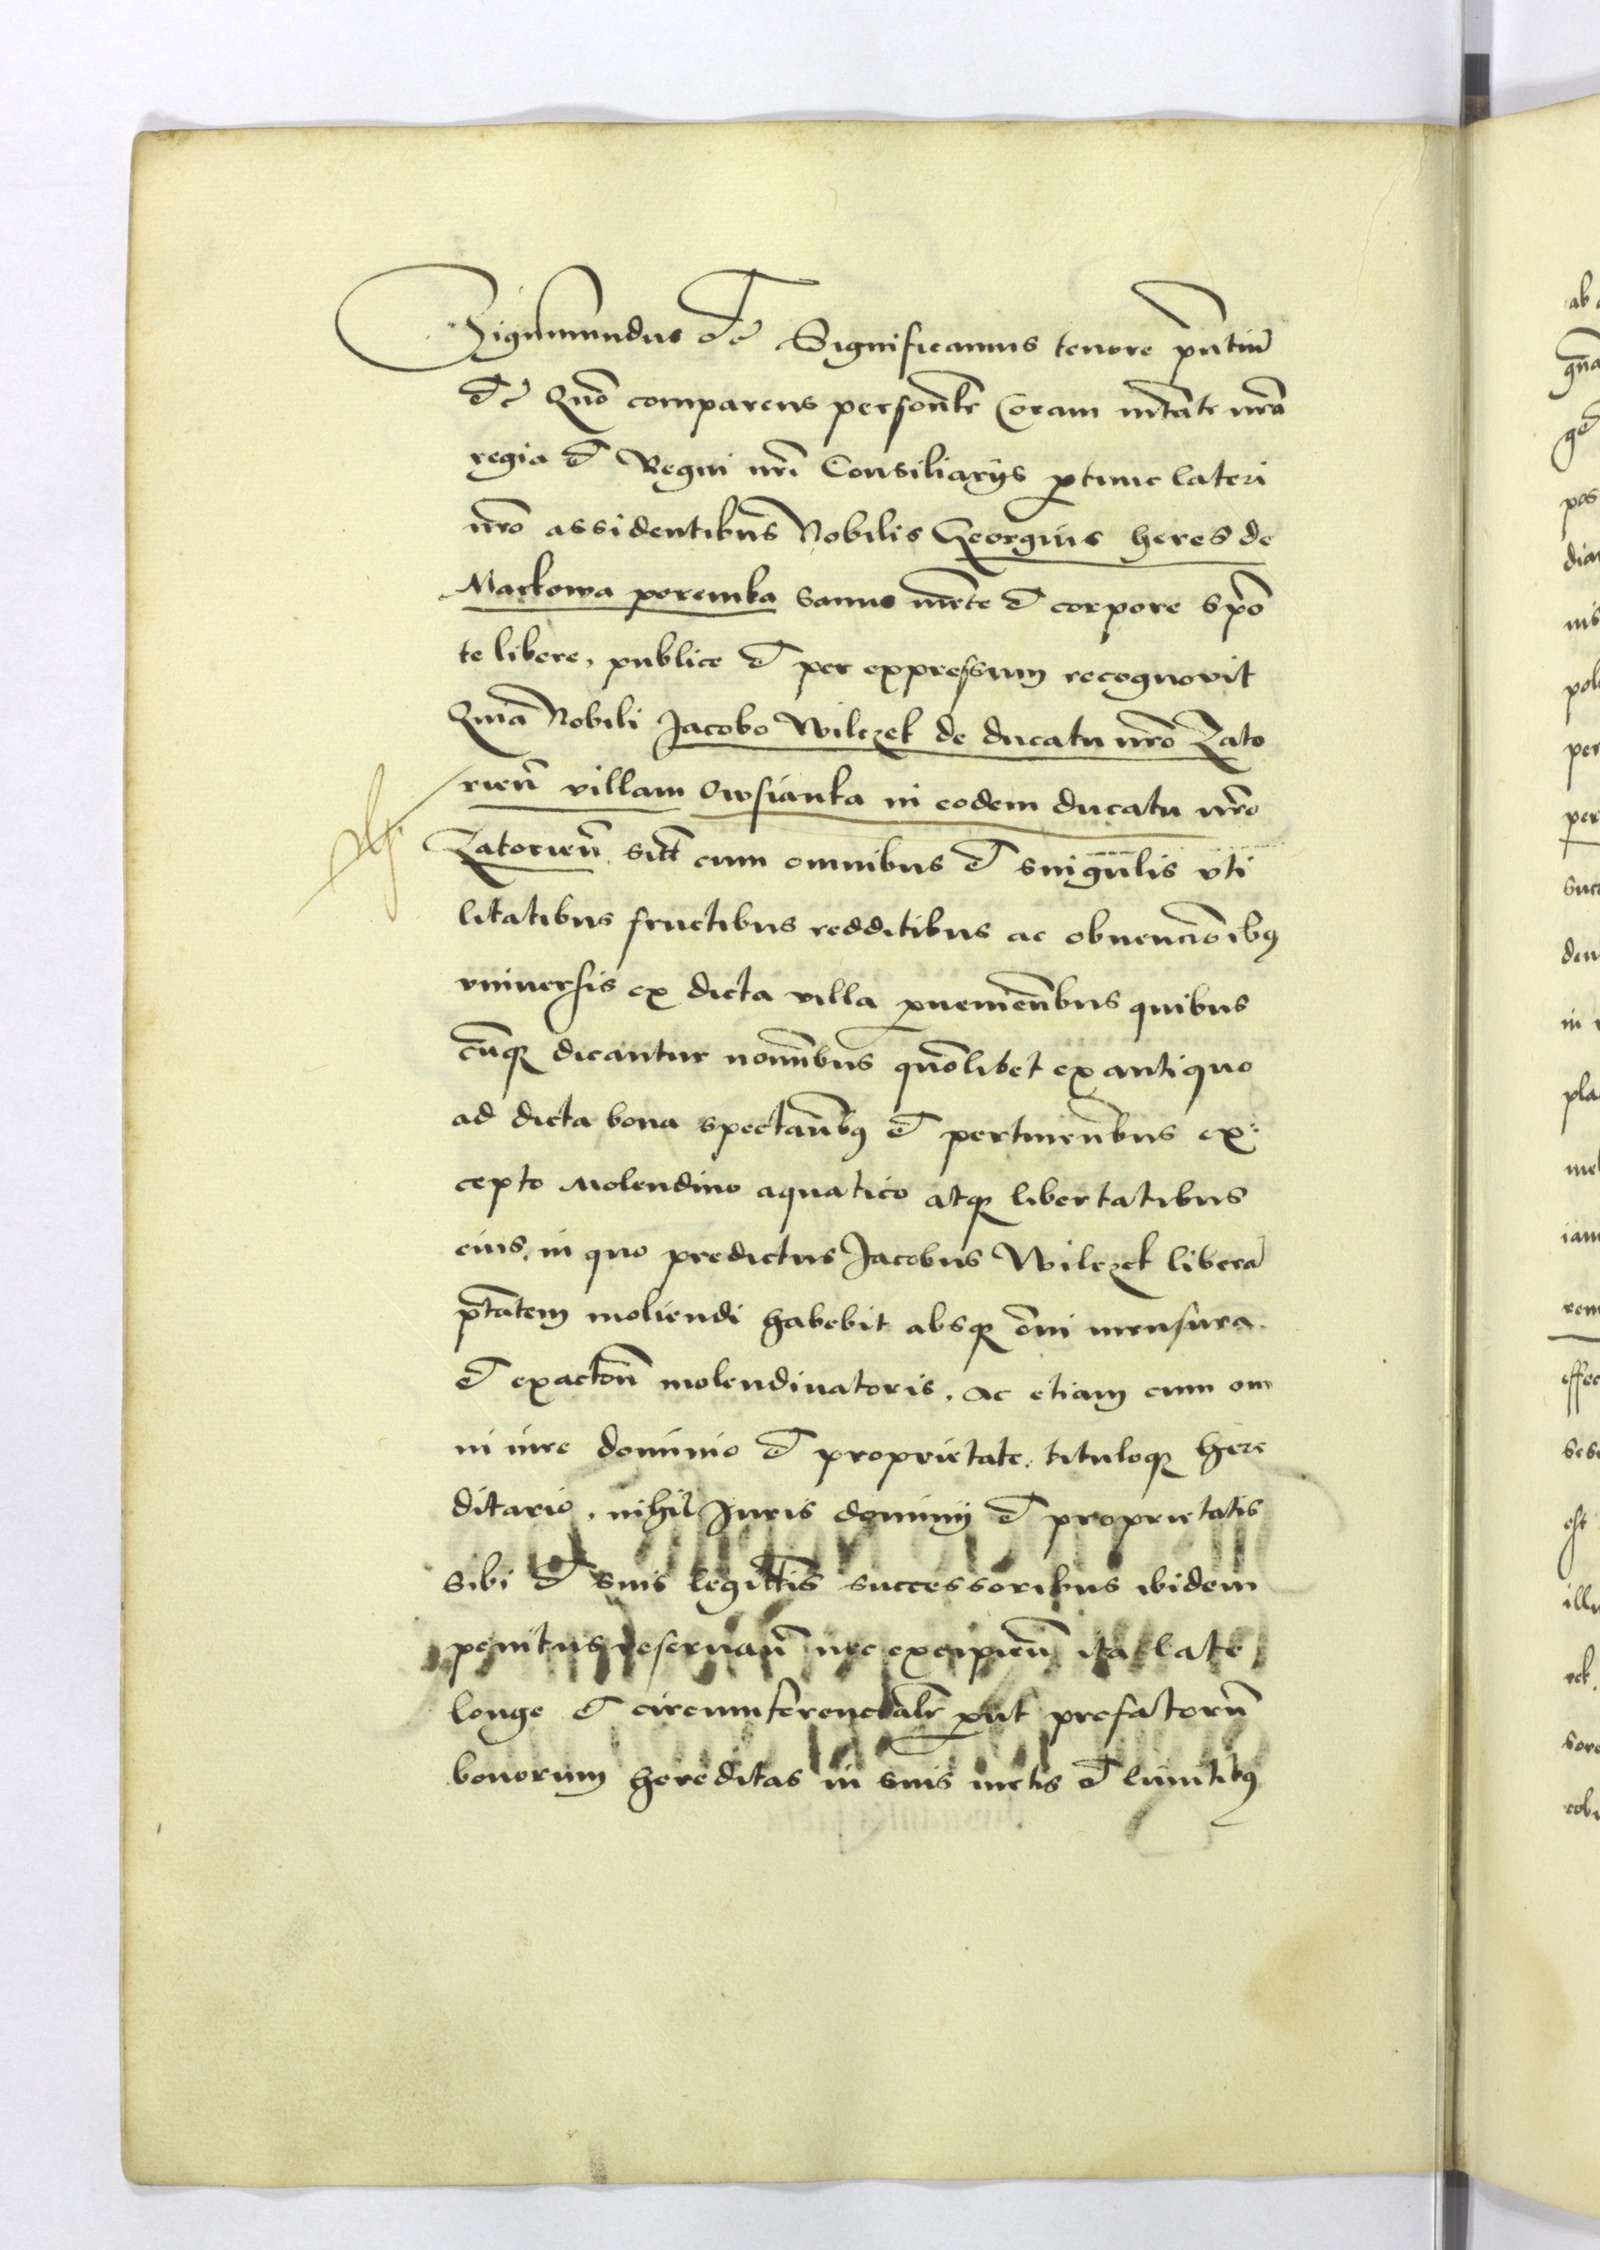 Sigismundus etc Significamus tenore pñtiũ
etc Quõ comparens personlr Coram mtate nrã
regia et Regni nrĩ Consiliarijs ptunc lateri
nrõ assidentibus Nobilis Georgius heres de
Markowa poremba sanus mẽte et corpore spõ
te libere, publice et per expressum recognovit
Quia Nobili Jacobo Wilczek de ducatu nrõ Zato
rieñ villam Owsianka in eodem ducatu nrõ
Zatorieñ sitã cum omnibus et singulis vti
litatibus fructibus redditibus ac obuencõibus
vniuersis ex dicta villa puenieñbus quibus
cũqz dicantur nomĩbus quõlibet ex antiquo
ad dicta bona spectañbus et pertineñbus ex:
cepto Molendino aquatico atqz libertatibus
eius, in quo predictus Jacobus Wilczek liberã
ptãtem moliendi habebit absqz õni mensura
et exactoñ molendinatoris, ac etiam cum om
ni iure dominio et proprietate, tituloqz here
ditario, nihil Juris dominij et proprietatis
sibi et suis legittĩs successoribus ibidem
penitus reseruañ nec excipieñ ita late
longe et circumferencialr put prefatorũ
bonorum hereditas in suis metis et limitibus